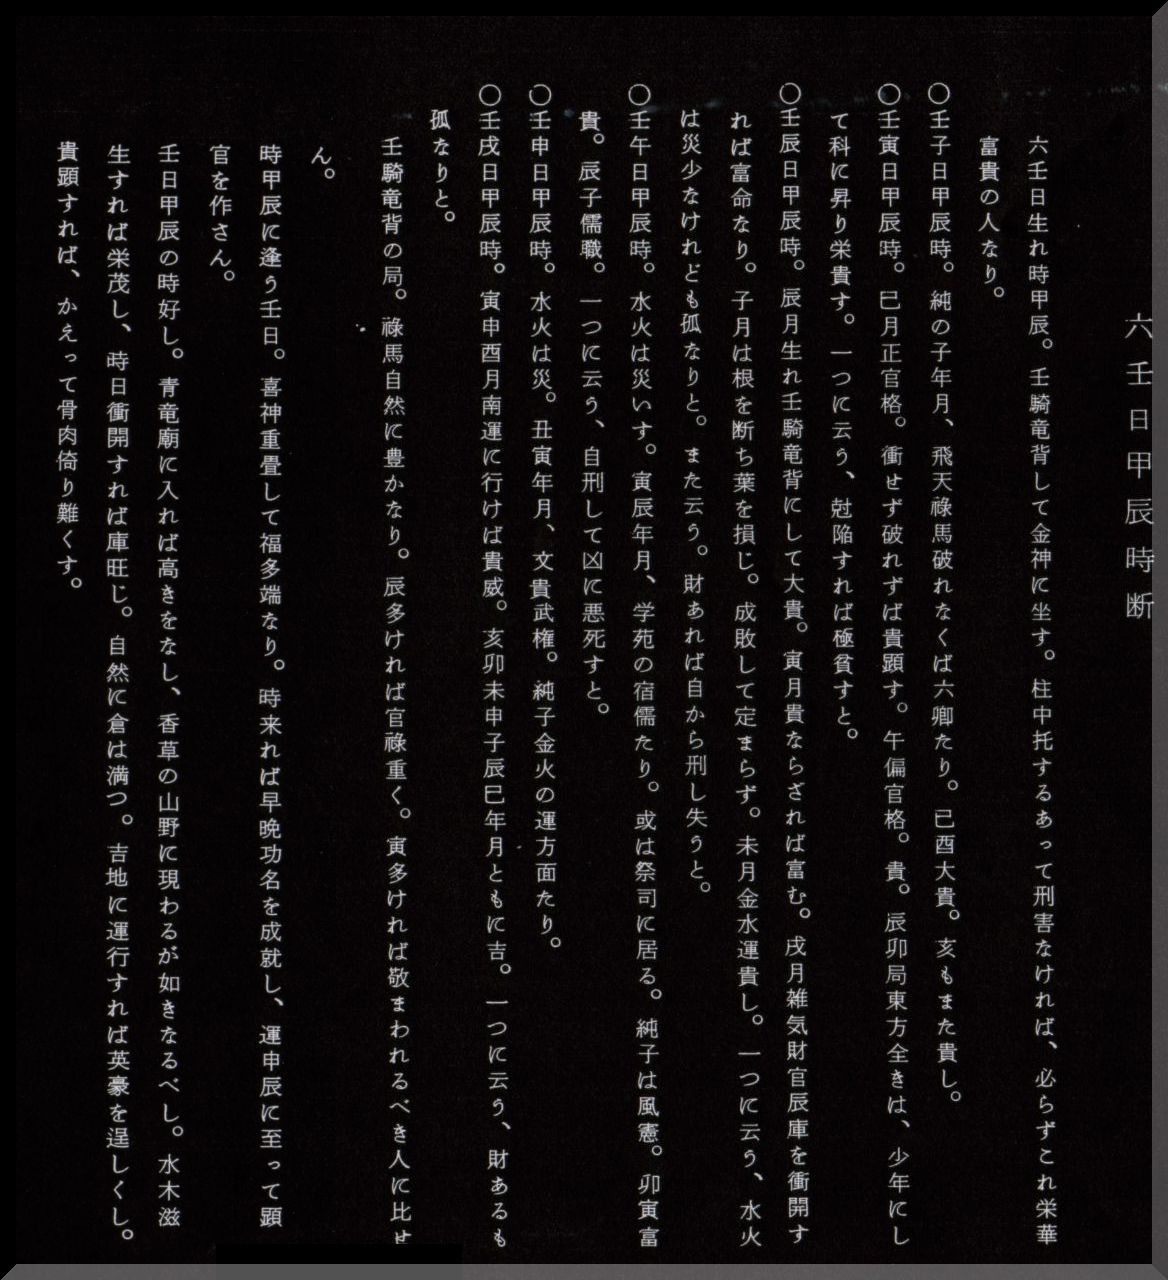 六壬日甲辰時断
六壬日生れ時甲辰。壬騎竜背して金神に坐す。柱中托するあって刑害なければ、必らずこれ栄華
富貴の人なり。
〇壬子日甲辰時。純の子年月、飛天祿馬破れなくば六卿たり。已酉大貴。亥もまた貴し。
〇壬寅日甲辰時。巳月正官格。衝せず破れずば貴顕す。午偏官格。貴。辰卯局東方全きは、少年にし
て科に昇り栄貴す。一つに云う、尅陥すれば極貧すと。
〇壬辰日甲辰時。辰月生れ壬騎竜背にして大貴。寅月貴ならざれば富む。戌月雑気財官辰庫を衝開す
れば富命なり。子月は根を断ち葉を損じ。成敗して定まらず。未月金水運貴し。一つに云う、水火
は災少なけれども孤なりと。また云う。財あれば自から刑し失うと。
〇壬午日甲辰時。水火は災いす。寅辰年月、学苑の宿儒たり。或は祭司に居る。純子は風憲。卯寅富
貴。辰子儒職。一つに云う、自刑して凶に悪死すと。
〇壬申日甲辰時。水火は災。丑寅年月、文貴武権。純子金火の運方面たり。
〇壬戌日甲辰時。寅申酉月南運に行けば貴威。亥卯未申子辰巳年月ともに吉。一つに云う、財あるも
孤なりと。
壬騎竜背の局。祿馬自然に豊かなり。辰多ければ官祿重く。寅多ければ敬まわれるべき人に比せ
ん。
時甲辰に逢う壬日。喜神重畳して福多端なり。時来れば早晩功名を成就し、運申辰に至って顕
官を作さん。
壬日甲辰の時好し。青竜廟に入れば高きをなし、香草の山野に現わるが如きなるべし。水木滋
生すれば栄茂し、時日衝開すれば庫旺じ。自然に倉は満つ。吉地に運行すれば英豪を逞しくし。
貴顕すれば、かえって骨肉倚り難くす。